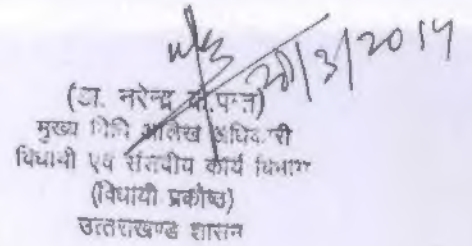 20/3/2014
(डा. नरेन्द्र
मुख्य विधि आलेख अधिकारी
विधायी एवं संसदीय कार्य विभाग
(विधायी प्रकोष्ठ)
उत्तराखण्ड शासन